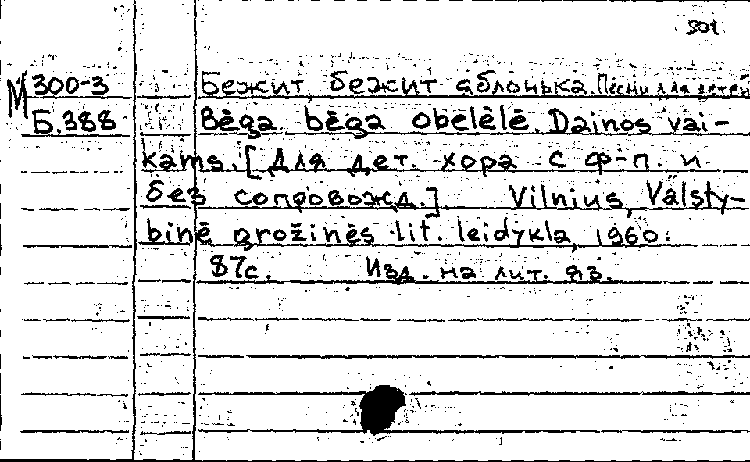 301
М 300-3 Бежит, бежит яблонька. Песни для детей
Б.388 Bėga, bėga obelėlė. Dainos vai-
kams. [Для дет. хора с ф-п. и
без сопровожд.]. Vilnius, Valsty-
binė grožinės lit. leidykla, 1960.
87с. Изд. на лит. яз.